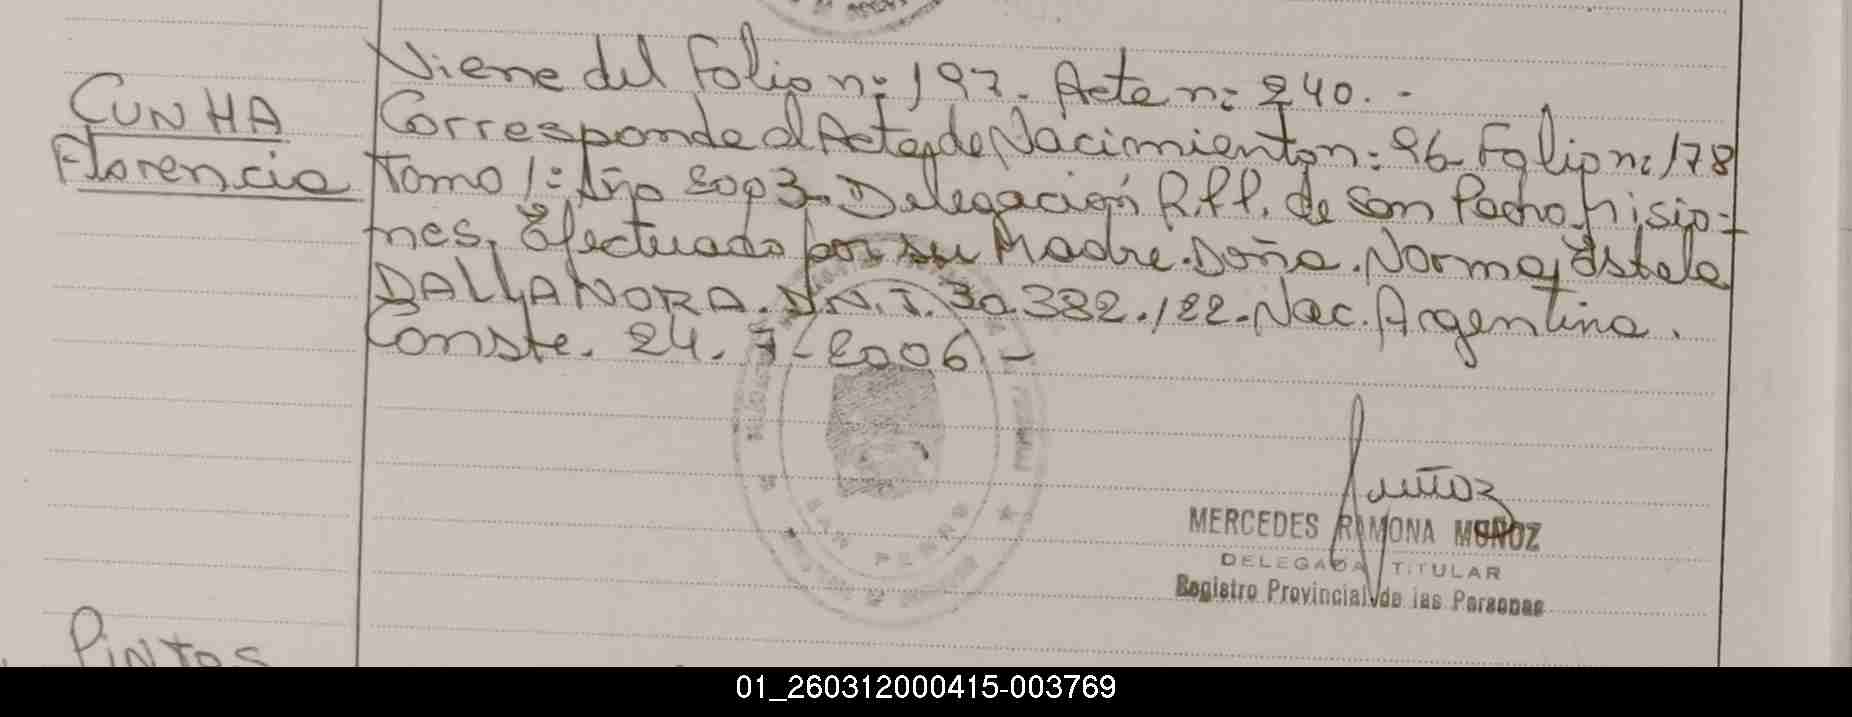 Viene del Folio nº 197. Acta nº 240. -
CUNHA
Florencia
Corresponde al Acta de Nacimiento nº 96 Folio nº 178
Tomo 1º Año 2003. Delegación R.P.P. de San Pedro Misio=
nes. Efectuado por su Madre. Doña. Norma Estela
DALLANORA. D.N.I. 30.382.122. Nac. Argentina.
Conste. 24. 7 - 2006 -
SAN PEDRO
Muñoz
MERCEDES RAMONA MUÑOZ
DELEGADA TITULAR
Registro Provincial de las Personas
PINTOS
01_260312000415-003769